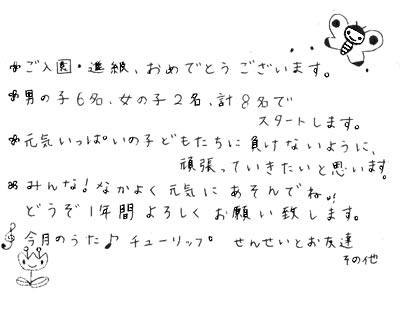 ご入園・進級、おめでとうございます。
男の子6名、女の子2名、計8名で
スタートします。
元気いっぱいの子どもたちに負けないように、
頑張っていきたいと思います。
みんな!なかよく元気にあそんでね!!
どうぞ1年間よろしくお願い致します。
今月のうた♪チューリップ せんせいとお友達
その他